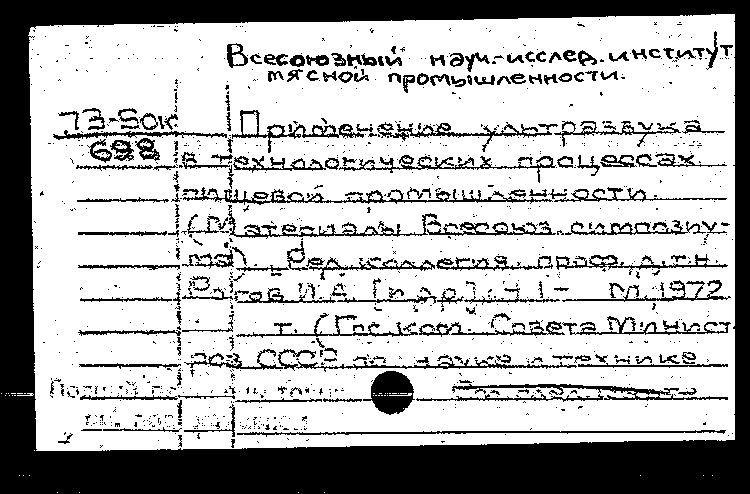 Всесоюзный науч.-исслед. институт
мясной промышленности.
73-5ок
698
Применение ультразвука
в технологических процессах
пищевой промышленности.
(Материалы Всесоюз. симпозиу-
ма). Ред. коллегия: проф. д.т.н.
Рогов И.А. [и др.]. Ч. 1- М., 1972
т. (Гос. ком. Совета Минист-
ров СССР по науке и технике
Полный
см. под